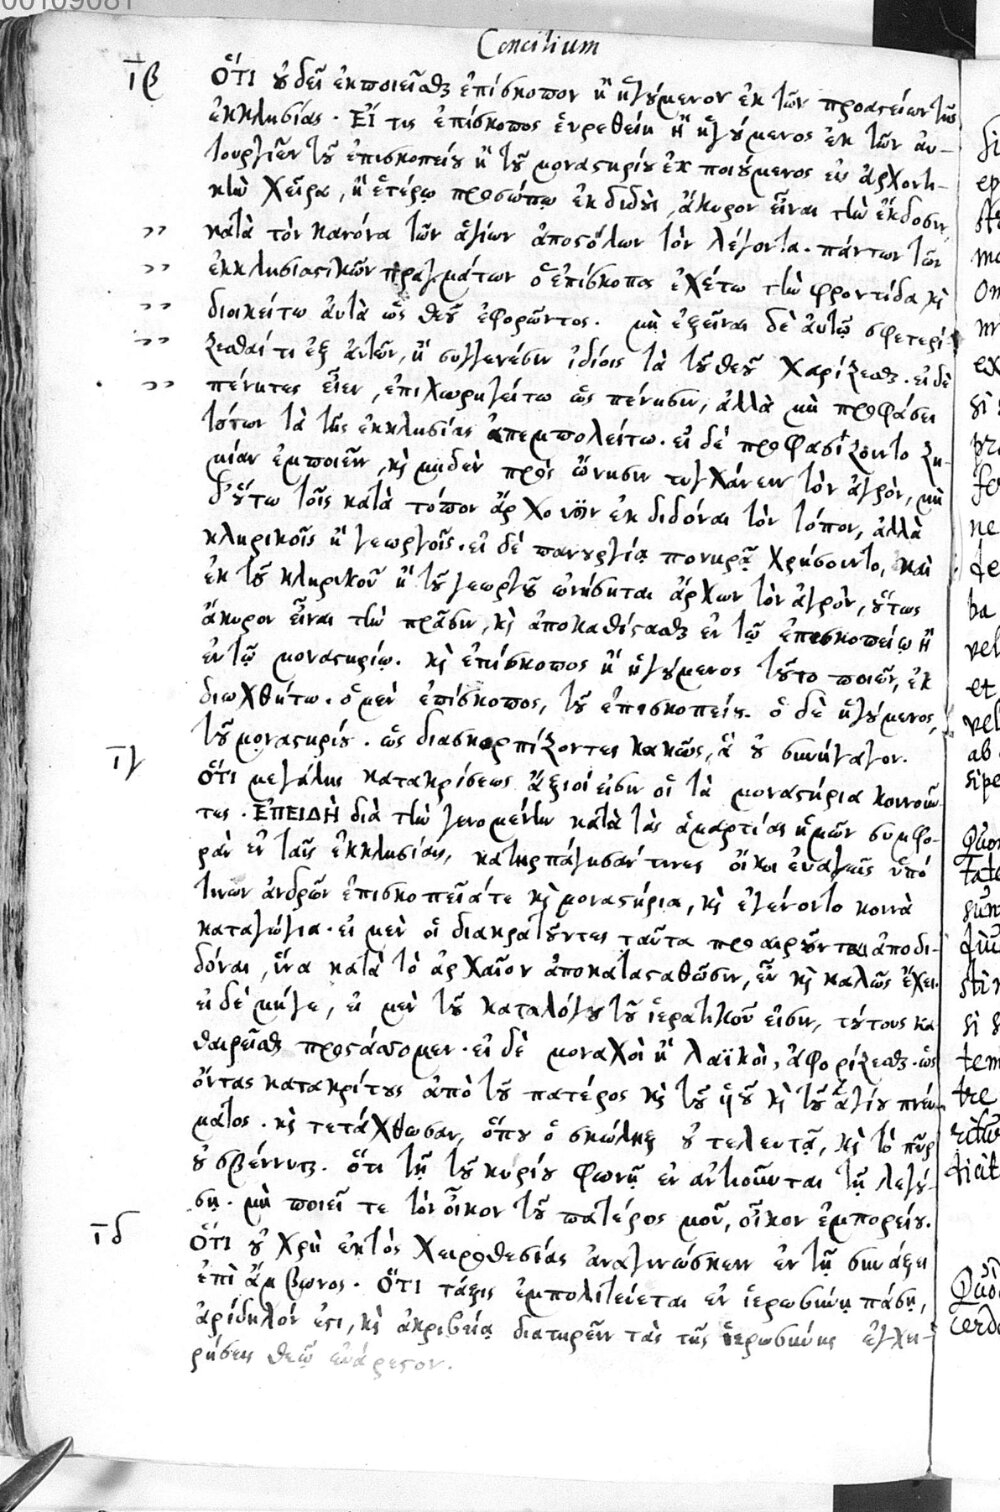 00109081
Concilium
ιβ ὍΤΙ οὐ δεῖ ἐκποιεῖσθαι ἐπίσκοπον ἢ ἡγούμενον ἐκ τῶν προαστείων τῆς
ἐκκλησίας. Εἴ τις ἐπίσκοπος εὑρεθείη ἢ ἡγούμενος ἐκ τῶν αὐ-
τουργιῶν τοῦ ἐπισκοπείου ἢ τοῦ μοναστηρίου ἐκποιούμενος εἰς ἀρχοντι-
κὴν χεῖρα, ἢ ἑτέρῳ προσώπῳ ἐκδιδούς, ἄκυρον εἶναι τὴν ἔκδοσιν,
κατὰ τὸν κανόνα τῶν ἁγίων ἀποστόλων τὸν λέγοντα. πάντων τῶν
ἐκκλησιαστικῶν πραγμάτων ὁ ἐπίσκοπος ἐχέτω τὴν φροντίδα, καὶ
διοικείτω αὐτὰ ὡς θεοῦ ἐφορῶντος. μὴ ἐξεῖναι δὲ αὐτῷ σφετερί-
ζεσθαί τι ἐξ αὐτῶν, ἢ συγγενέσιν ἰδίοις τὰ τοῦ θεοῦ χαρίζεσθαι. εἰ δὲ
πένητες εἶεν, ἐπιχωρηγείτω ὡς πένησιν, ἀλλὰ μὴ προφάσει
τούτων τὰ τῆς ἐκκλησίας ἀπεμπολείτω. εἰ δὲ προφασίζοιντο ζη-
μίαν ἐμποιεῖν, καὶ μηδὲν πρὸς ὄνησιν τυγχάνειν τὸν ἀγρὸν, μὴ
δ' οὕτω τοῖς κατὰ τόπον ἄρχουσιν ἐκδιδόναι τὸν τόπον, ἀλλὰ
κληρικοῖς ἢ γεωργοῖς. εἰ δὲ πανουργίᾳ πονηρᾷ χρήσοιντο, καὶ
ἐκ τοῦ κληρικοῦ ἢ τοῦ γεωργοῦ ὠνήσηται ἄρχων τὸν ἀγρὸν, οὕτως
ἄκυρον εἶναι τὴν πρᾶσιν, καὶ ἀποκαθίστασθαι ἐν τῷ ἐπισκοπείῳ ἢ
ἐν τῷ μοναστηρίῳ. καὶ ἐπίσκοπος ἢ ἡγούμενος τοῦτο ποιῶν, ἐκ
διωχθήτω. ὁ μὲν ἐπίσκοπος, τοῦ ἐπισκοπείου. ὁ δὲ ἡγούμενος,
τοῦ μοναστηρίου. ὡς διασκορπίζοντες κακῶς, ἃ οὐ συνήγαγον.
ιγ ὍΤΙ μεγάλης κατακρίσεως ἄξιοί εἰσιν οἱ τὰ μοναστήρια κοινοῦν
τες. ἘΠΕΙΔῊ διὰ τὴν γενομένην κατὰ τὰς ἁμαρτίας ἡμῶν συμφο-
ρὰν ἐν ταῖς ἐκκλησίαις, καθηρπάγησάν τινες οἶκοι εὐαγεῖς ὑπό
τινων ἀνδρῶν ἐπισκοπεῖά τε καὶ μοναστήρια, καὶ ἐγένοντο κοινὰ
καταγώγια. εἰ μὲν οἱ διακρατοῦντες ταῦτα προαιροῦνται ἀποδι-
δόναι, ἵνα κατὰ τὸ ἀρχαῖον ἀποκατασταθῶσιν, εὖ καὶ καλῶς ἔχει.
εἰ δὲ μήγε, εἰ μὲν τοῦ καταλόγου τοῦ ἱερατικοῦ εἰσιν, τούτους κα
θαιρεῖσθαι προστάσσομεν. εἰ δὲ μοναχοὶ ἢ λαϊκοὶ, ἀφορίζεσθαι. ὡς
ὄντας κατακρίτους ἀπὸ τοῦ πατέρος καὶ τοῦ υἱοῦ καὶ τοῦ ἁγίου πνεύ-
ματος. καὶ τετάχθωσαν, ὅπου ὁ σκώληξ οὐ τελευτᾷ, καὶ τὸ πῦρ
οὐ σβέννυται. ὅτι τῇ τοῦ κυρίου φωνῇ ἐναντιοῦνται τῇ λεγού-
σῃ. μὴ ποιεῖτε τὸν οἶκον τοῦ πατέρος μοῦ, οἶκον ἐμπορείου.
ιδ ὍΤΙ οὐ χρὴ ἐκτὸς χειροθεσίας ἀναγινώσκειν ἐν τῇ συνάξει
ἐπὶ ἄμβωνος. ὍΤΙ τάξις ἐμπολιτεύεται ἐν ἱερωσύνῃ πάσῃ,
ἀρίδηλόν ἐστι, καὶ ἀκριβείᾳ διατηρεῖν τὰς τῆς ἱερωσύνης ἐγχει-
ρήσεις θεῷ εὐάρεστον.